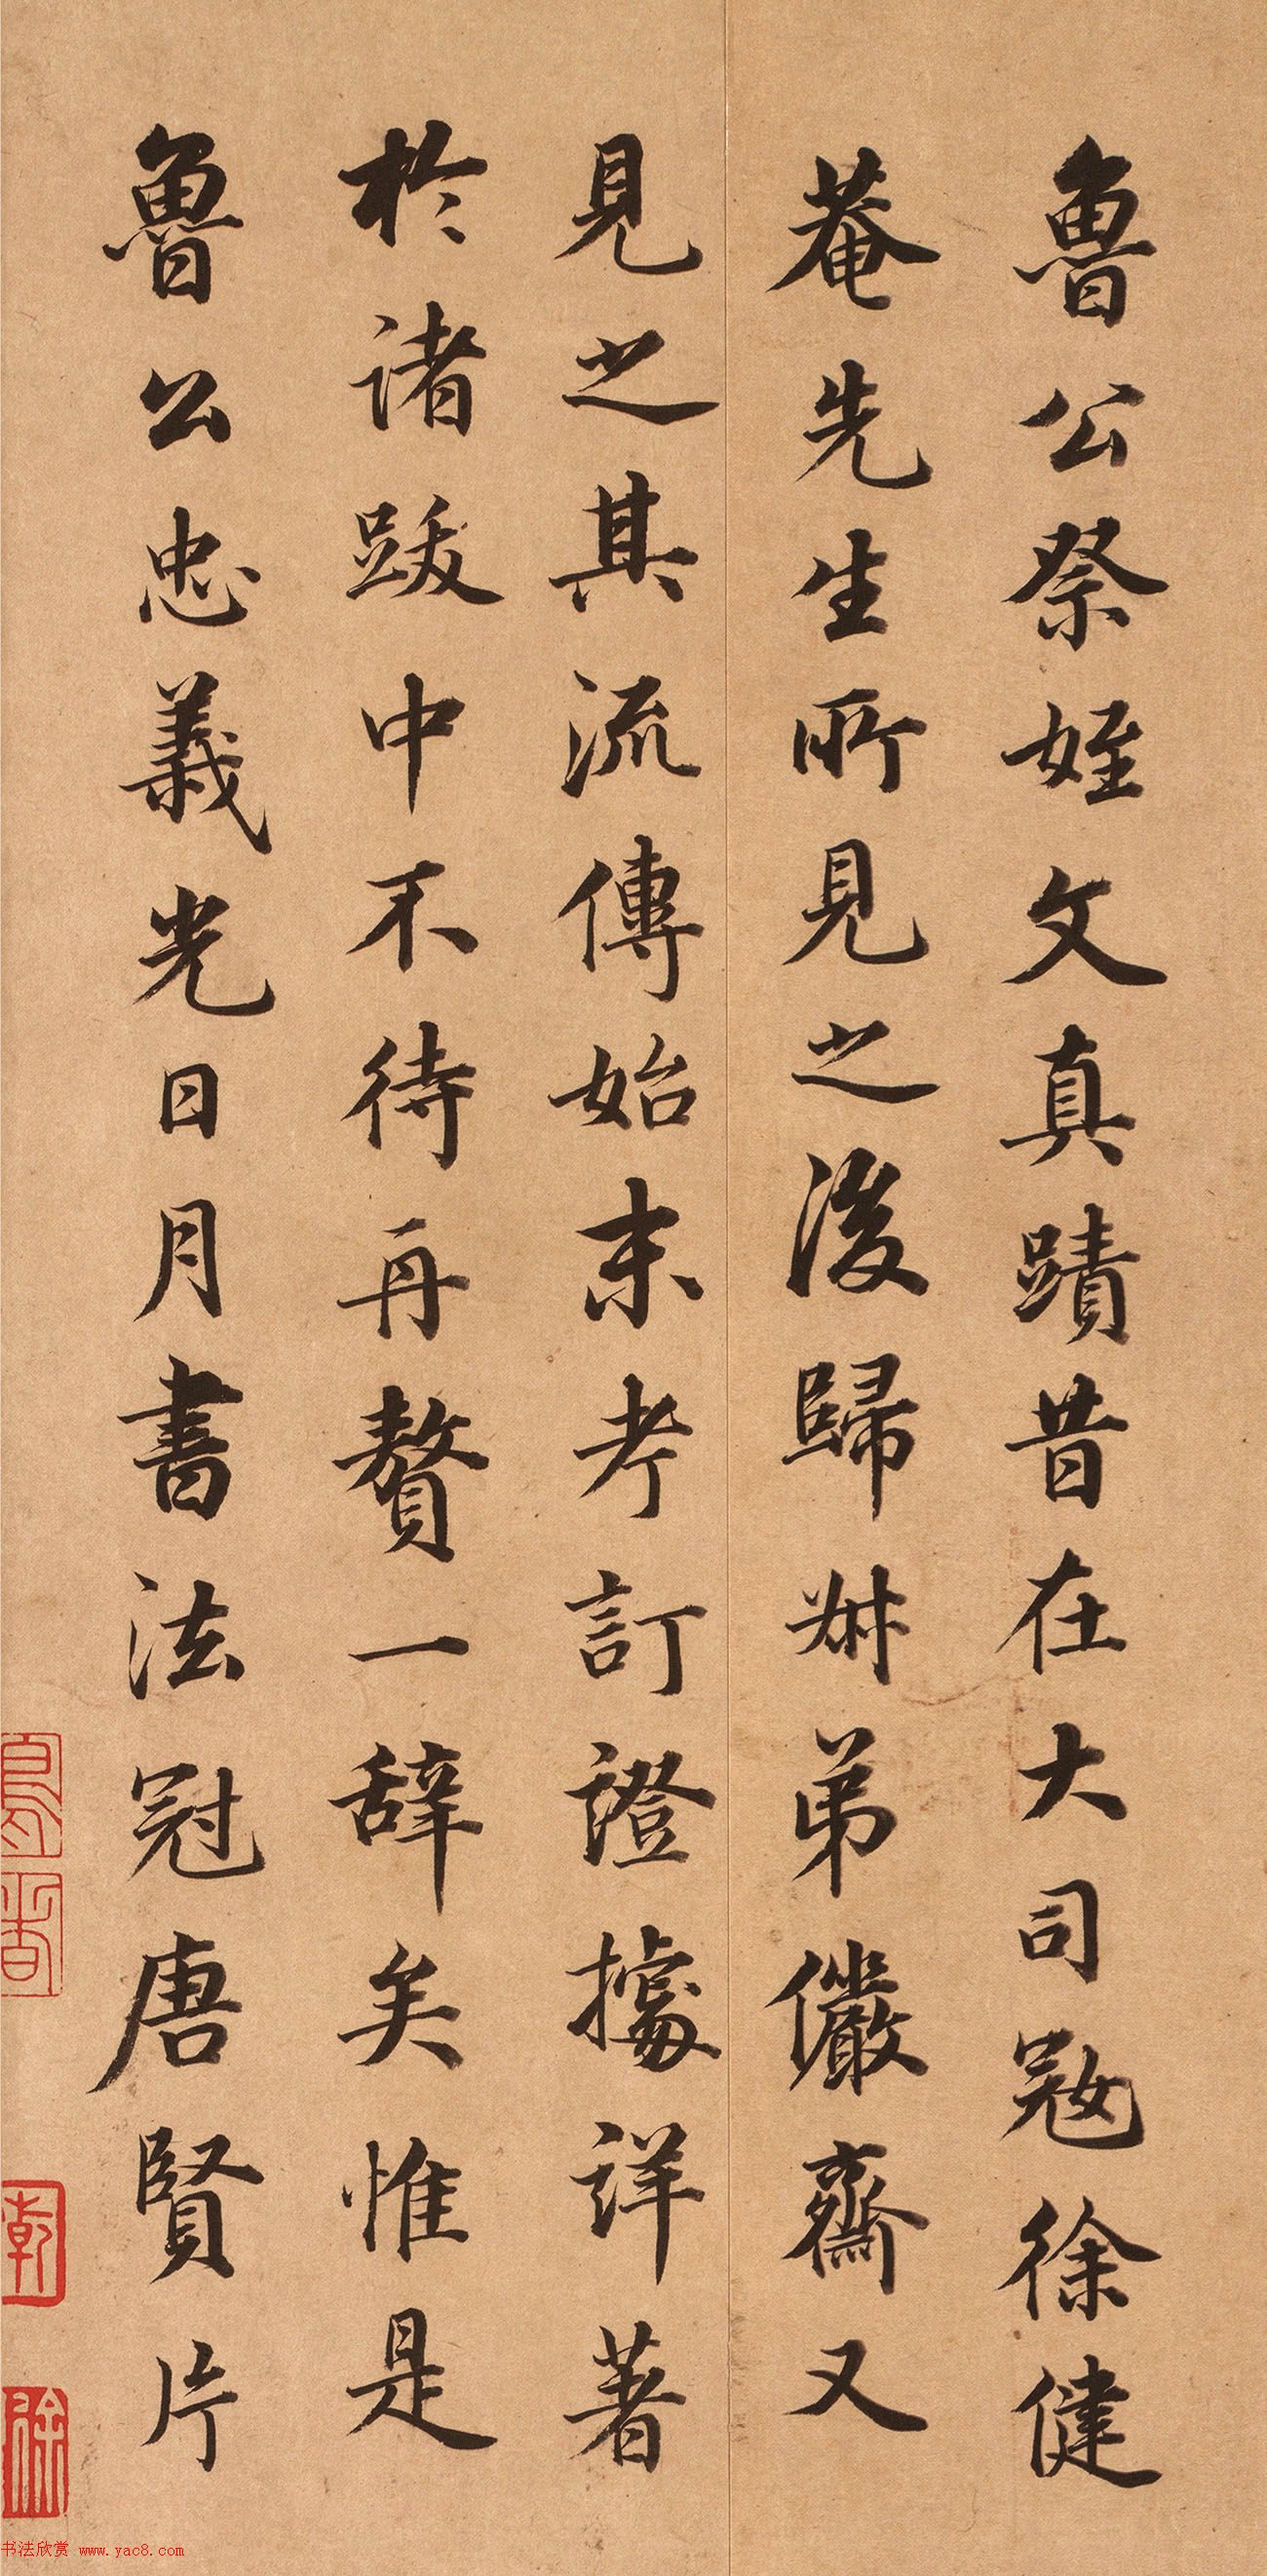 魯公祭姪文真蹟昔在大司寇徐健
菴先生所見之後歸淋弟儼齋又
見之其流傳始末考訂證據詳著
於諸跋中不待再贅一辭矣惟是
魯公忠義光日月書法冠唐賢片
乾
徐
书法欣赏 www.yac8.com